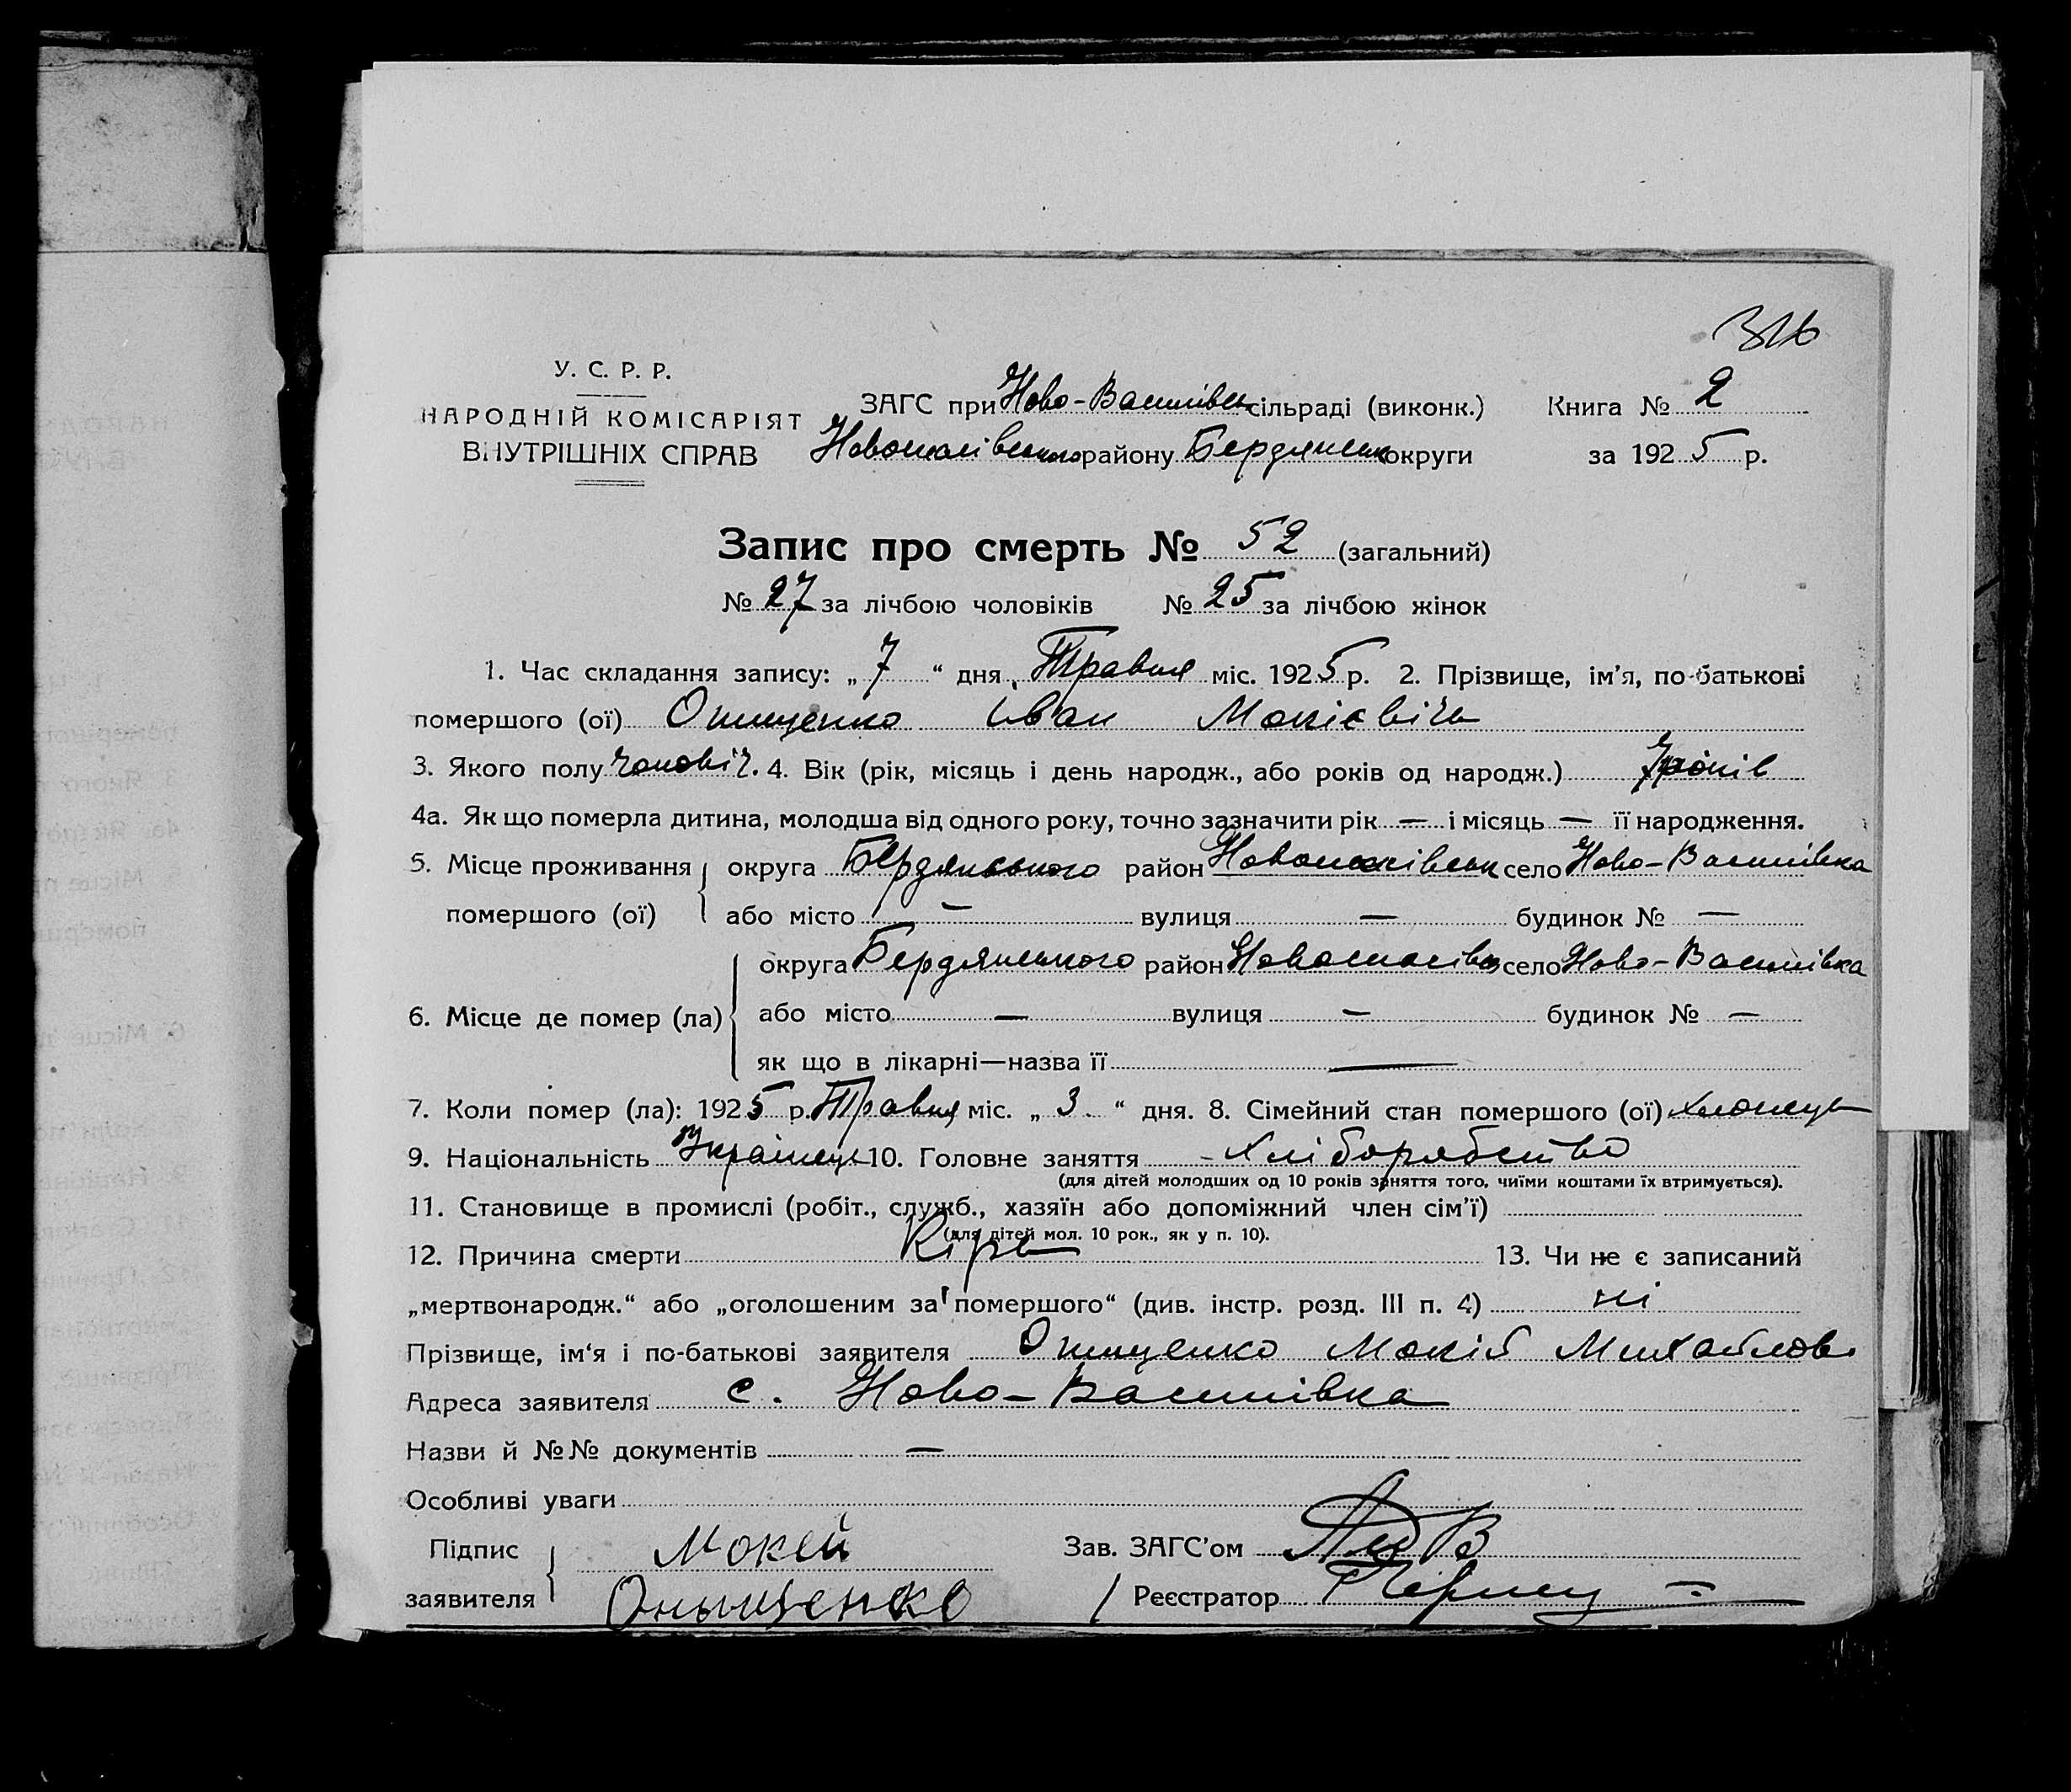 316
У. С. Р. Р.
НАРОДНІЙ КОМІСАРІЯТ
ВНУТРІШНІХ СПРАВ
ЗАГС при Ново-Василівськ сільраді (виконк.) Книга № 2
Новоспасівського району Бердянськ округи за 1925 р.
Запис про смерть № 52 (загальний)
№ 27 за лічбою чоловіків № 25 за лічбою жінок
1. Час складання запису: „ 7 “ дня Травня міс. 1925 р. 2. Прізвище, ім'я, по-батькові
помершого (ої) Онищенко Іван Мокієвічь
3. Якого полу чоловіч. 4. Вік (рік, місяць і день народж., або років од народж.) 7 років
4а. Як що померла дитина, молодша від одного року, точно зазначити рік — і місяць — її народження.
5. Місце проживання округа Бердянського район Новоспасівськ село Ново-Василівка
помершого (ої) або місто — вулиця — будинок № —
округа Бердянського район Новоспасівськ село Ново-Василівка
6. Місце де помер (ла) або місто — вулиця — будинок № —
як що в лікарні—назва її —
7. Коли помер (ла): 1925 р. Травня міс. „ 3 “ дня. 8. Сімейний стан помершого (ої) хлопець
9. Національність Українець 10. Головне заняття - хліборобство
(для дітей молодших од 10 років заняття того, чиїми коштами їх втримується).
11. Становище в промислі (робіт., служб., хазяїн або допоміжний член сім'ї)
(для дітей мол. 10 рок., як у п. 10).
12. Причина смерти Кірь 13. Чи не є записаний
„мертвонародж.“ або „оголошеним за помершого“ (див. інстр. розд. III п. 4) ні
Прізвище, ім'я і по-батькові заявителя Онищенко Мокій Михайлов.
Адреса заявителя с. Ново-Василівка
Назви й №№ документів —
Особливі уваги
Підпис Мокей Зав. ЗАГС'ом
заявителя Оныщенко Реєстратор